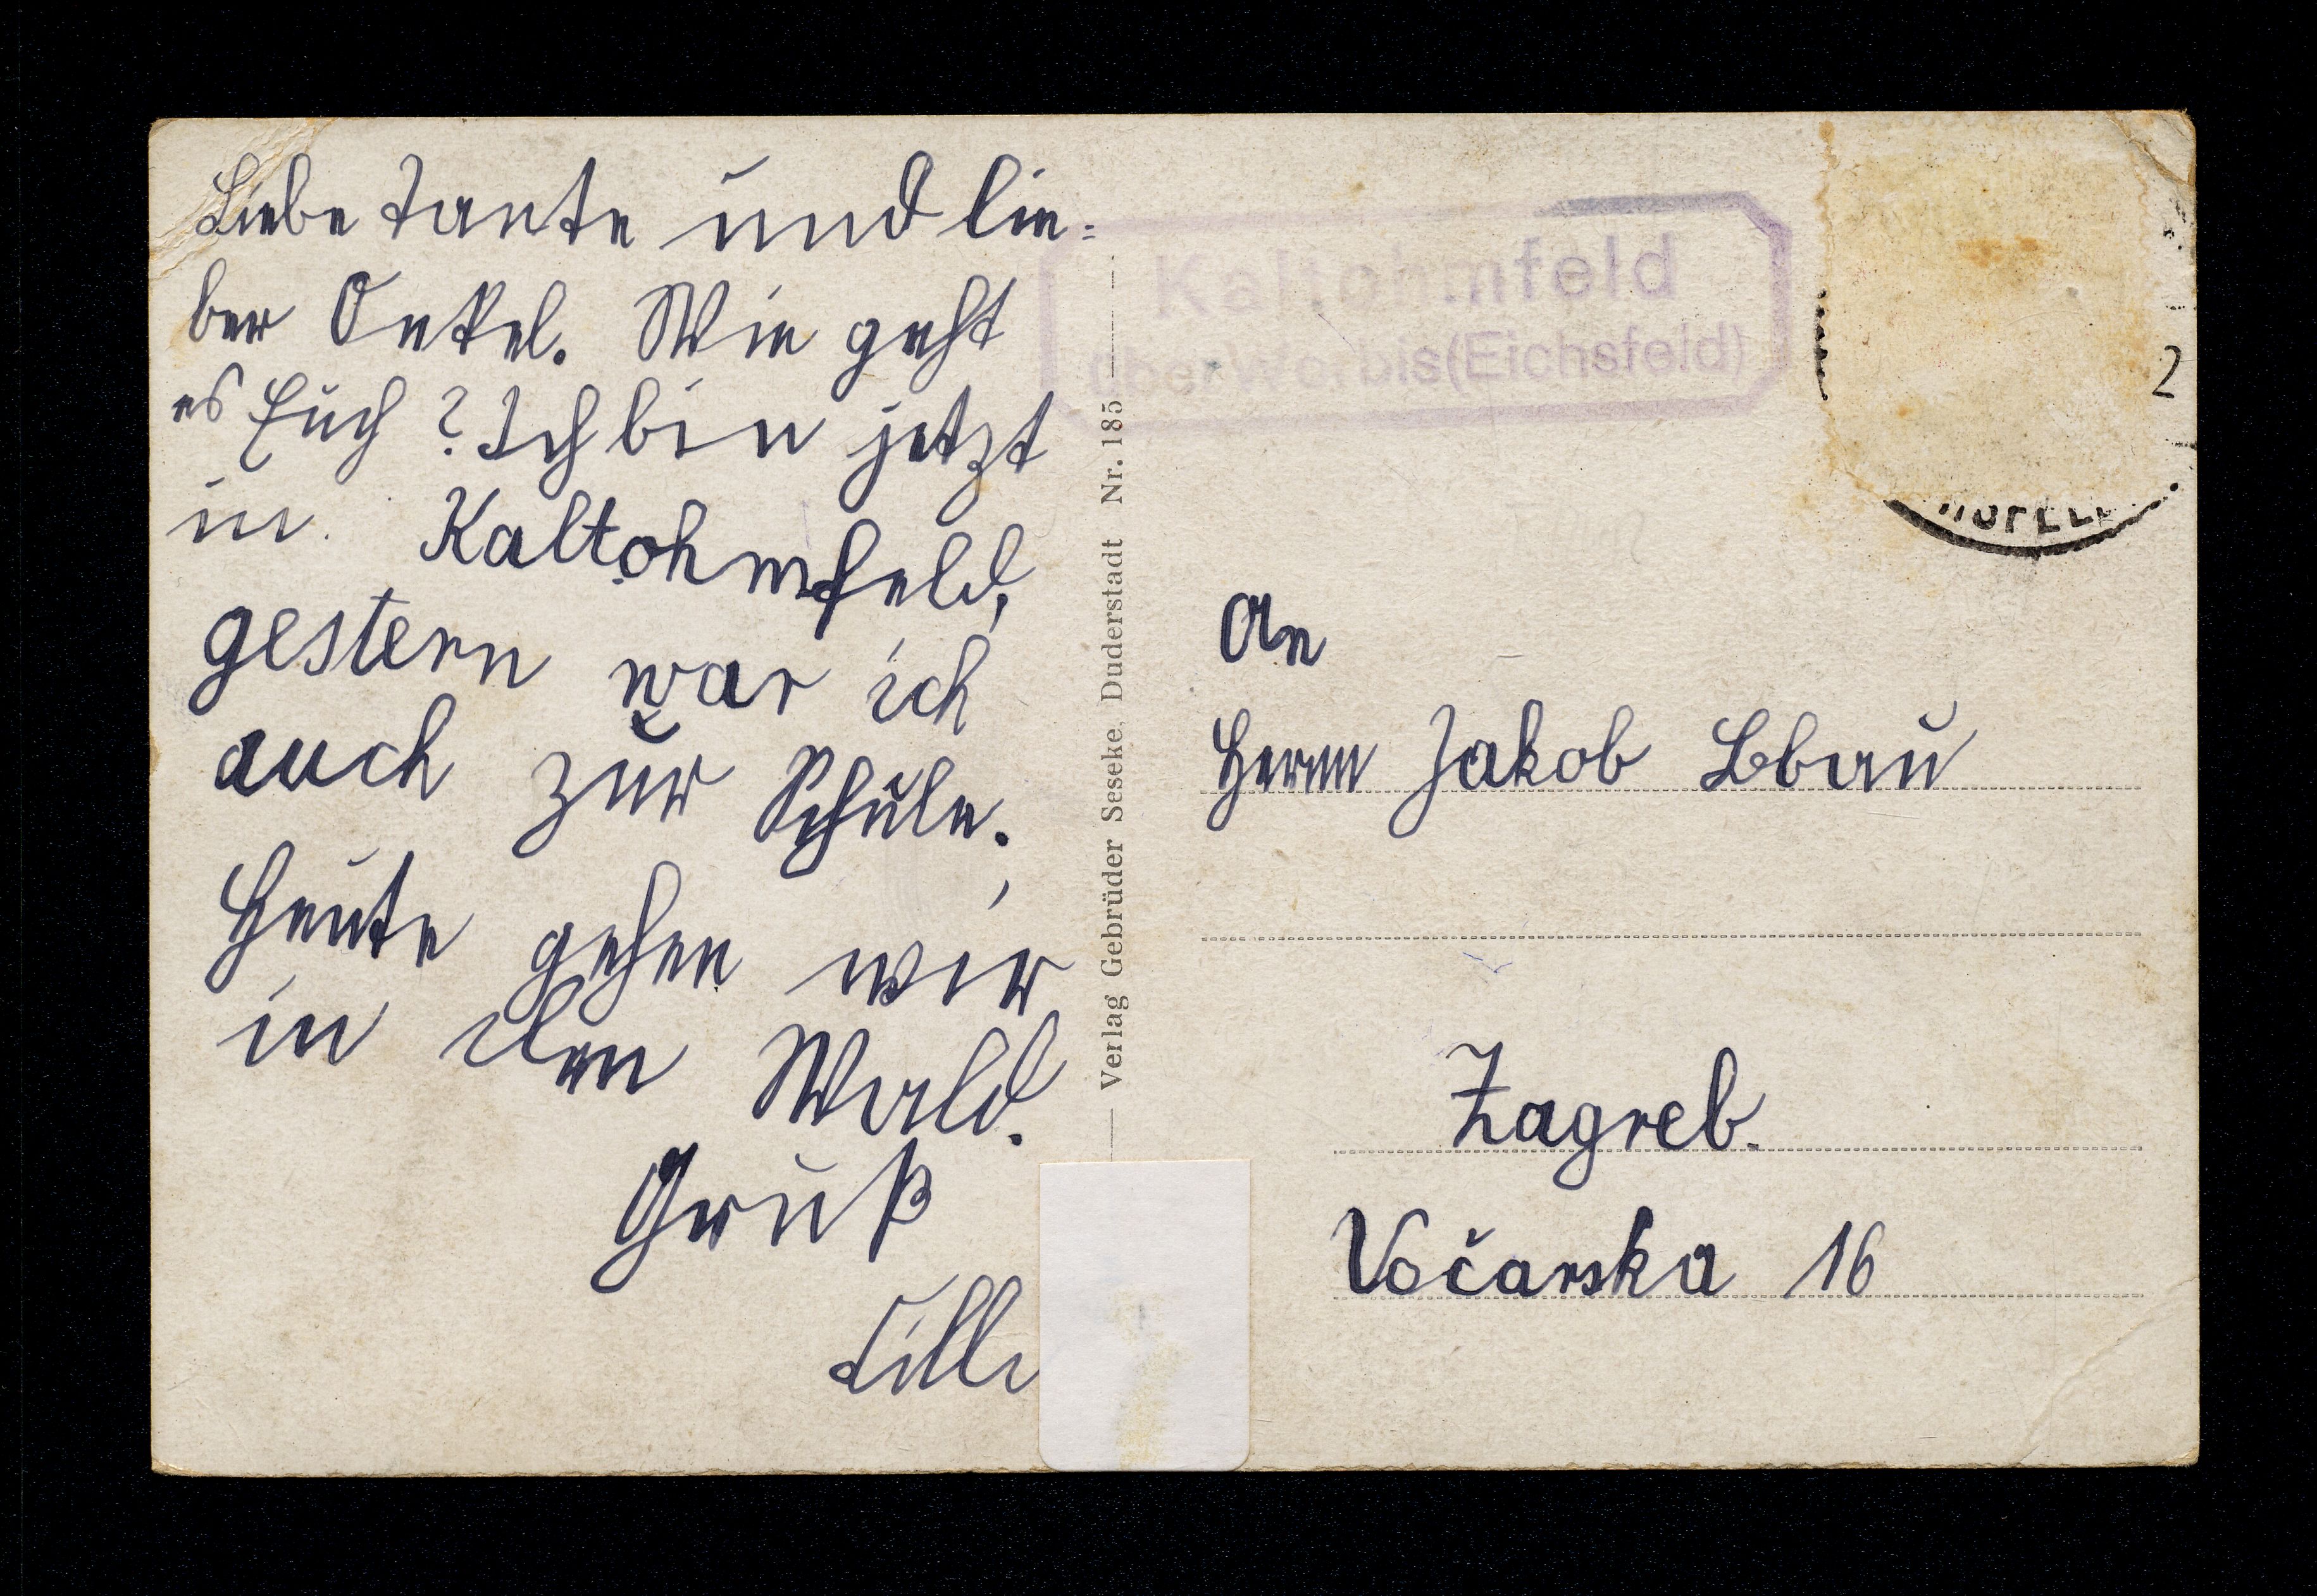 Liebe Tante und lie=
ber Onkel. Wie geht
es Euch? Ich bin jetzt
in Kaltohmfeld,
gestern war ich
auch zur Schule.
Heute gehen wir
in den Wald.
Gruß
Lilli
Verlag Gebrüder Seseke, Duderstadt Nr. 185
Kaltohmfeld
über Worbis (Eichsfeld)
2
An
Herrn Jakob
Zagreb.
Vočarska 16